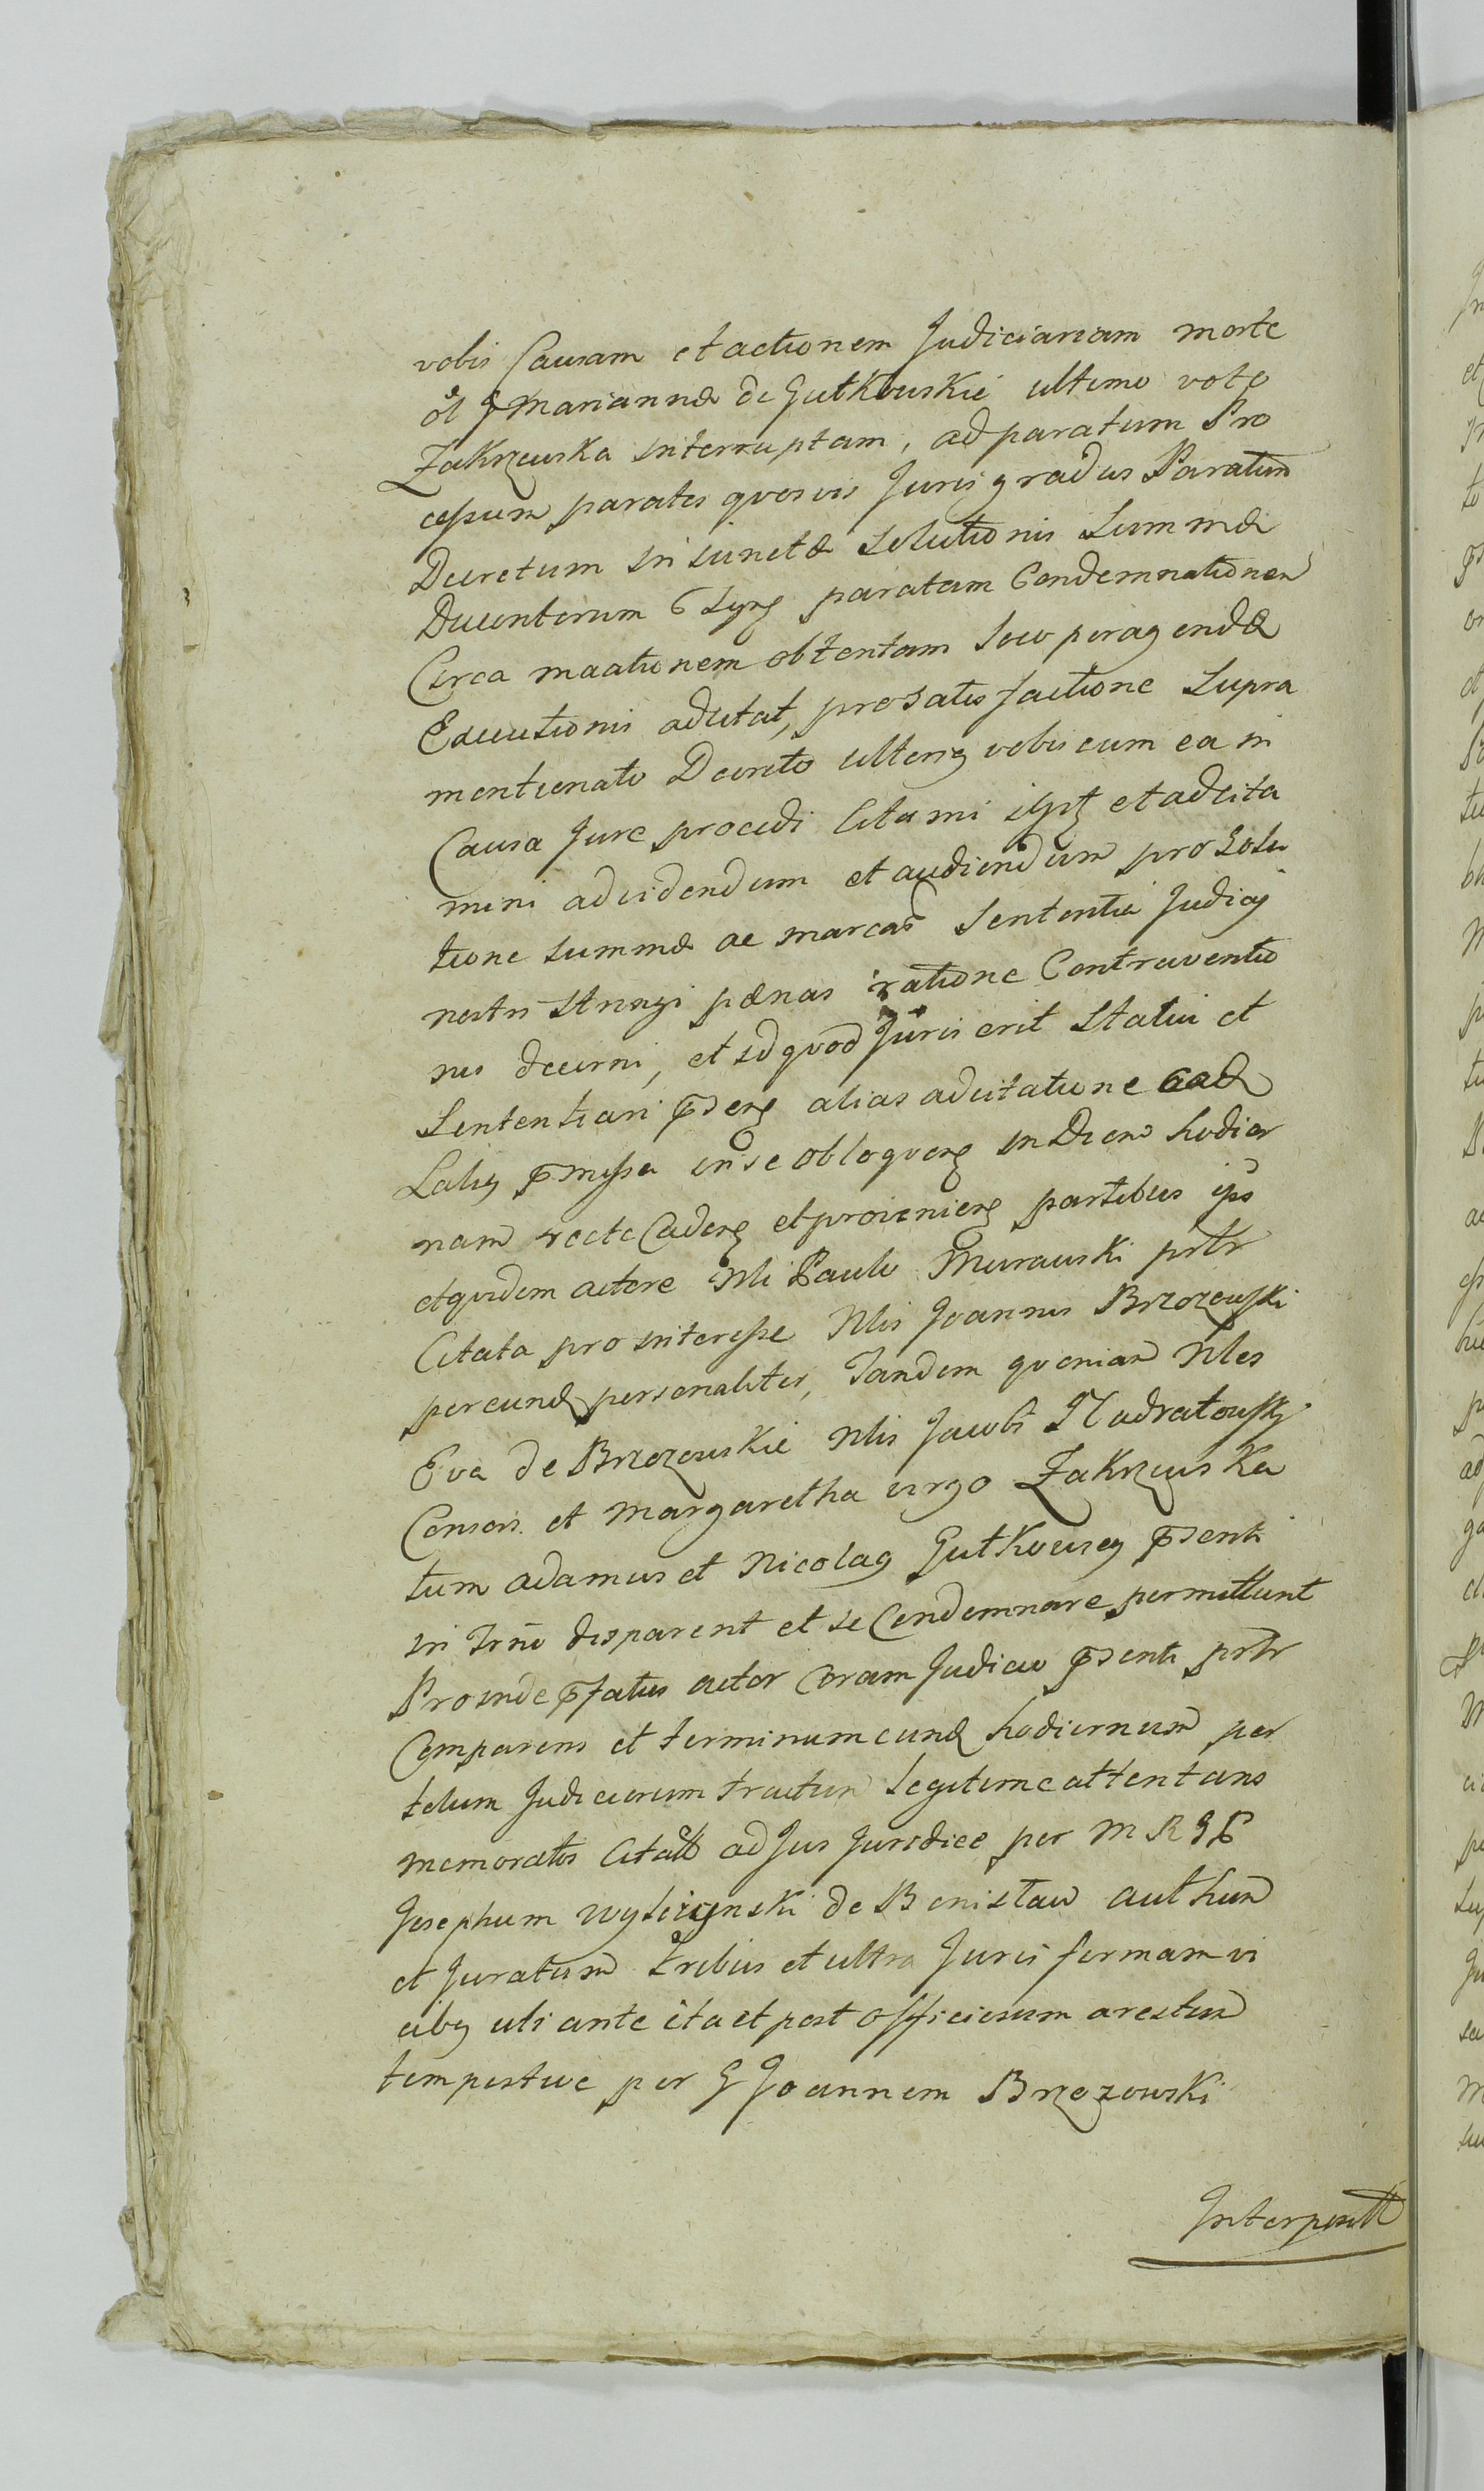 vobis Causam et actionem Judiciariam morte
ol G Mariannæ de Gutkowskie ultimo voto
Zakrzewska interruptam, ad paratum Pro
cessum paratos quosvis Juris gradus Paratum
Decretum iniunctæ Solutionis Summæ
Ducentorum paratam Condemnationem
Circa obtentam loco peragendæ
Executionis adcitat, pro satisfactione Supra
mentionato Decreto ulterius vobiscum ea in
Causa Jure procedi Citamini et adcita
mini ad videndum et audiendum pro Solu
tione Summæ ac marcas Sententia Judicij
nostri Stringi pænas ratione Contraventio
nis decerni, et id quod Juris erit Statui et
Sententiari alias adcitatione
Latius in se in Diem hodier
nam recte partibus ips
et quidem actore Nli Paulo Murawski prlr
Citata pro interesse Nlis Joannis Brzozowski
per eund personaliter, Tandem quoniam Nles
Eva de Brzozowskie Nlis Jacobi Nadratowski
Consors. et Margaretha virgo Zakrzewska
tum Adamus et Nicolaus Gutkowscy psenti
in Trno disparent et se Condemnare permittunt
Proinde pfatus actor Coram Judicio psenti prlr
Comparens et terminum eund hodiernum per
totum Judiciorum tractum Legitime attentans
memoratos Citatos ad Jus Juridice per M R G P
Josephum de Benislaw auth
et Juratum tribus et ultra Juris formam vi
cibus uti ante ita et post officiosum arestum
tempestive per G Joannem Brzozowski
Interposit